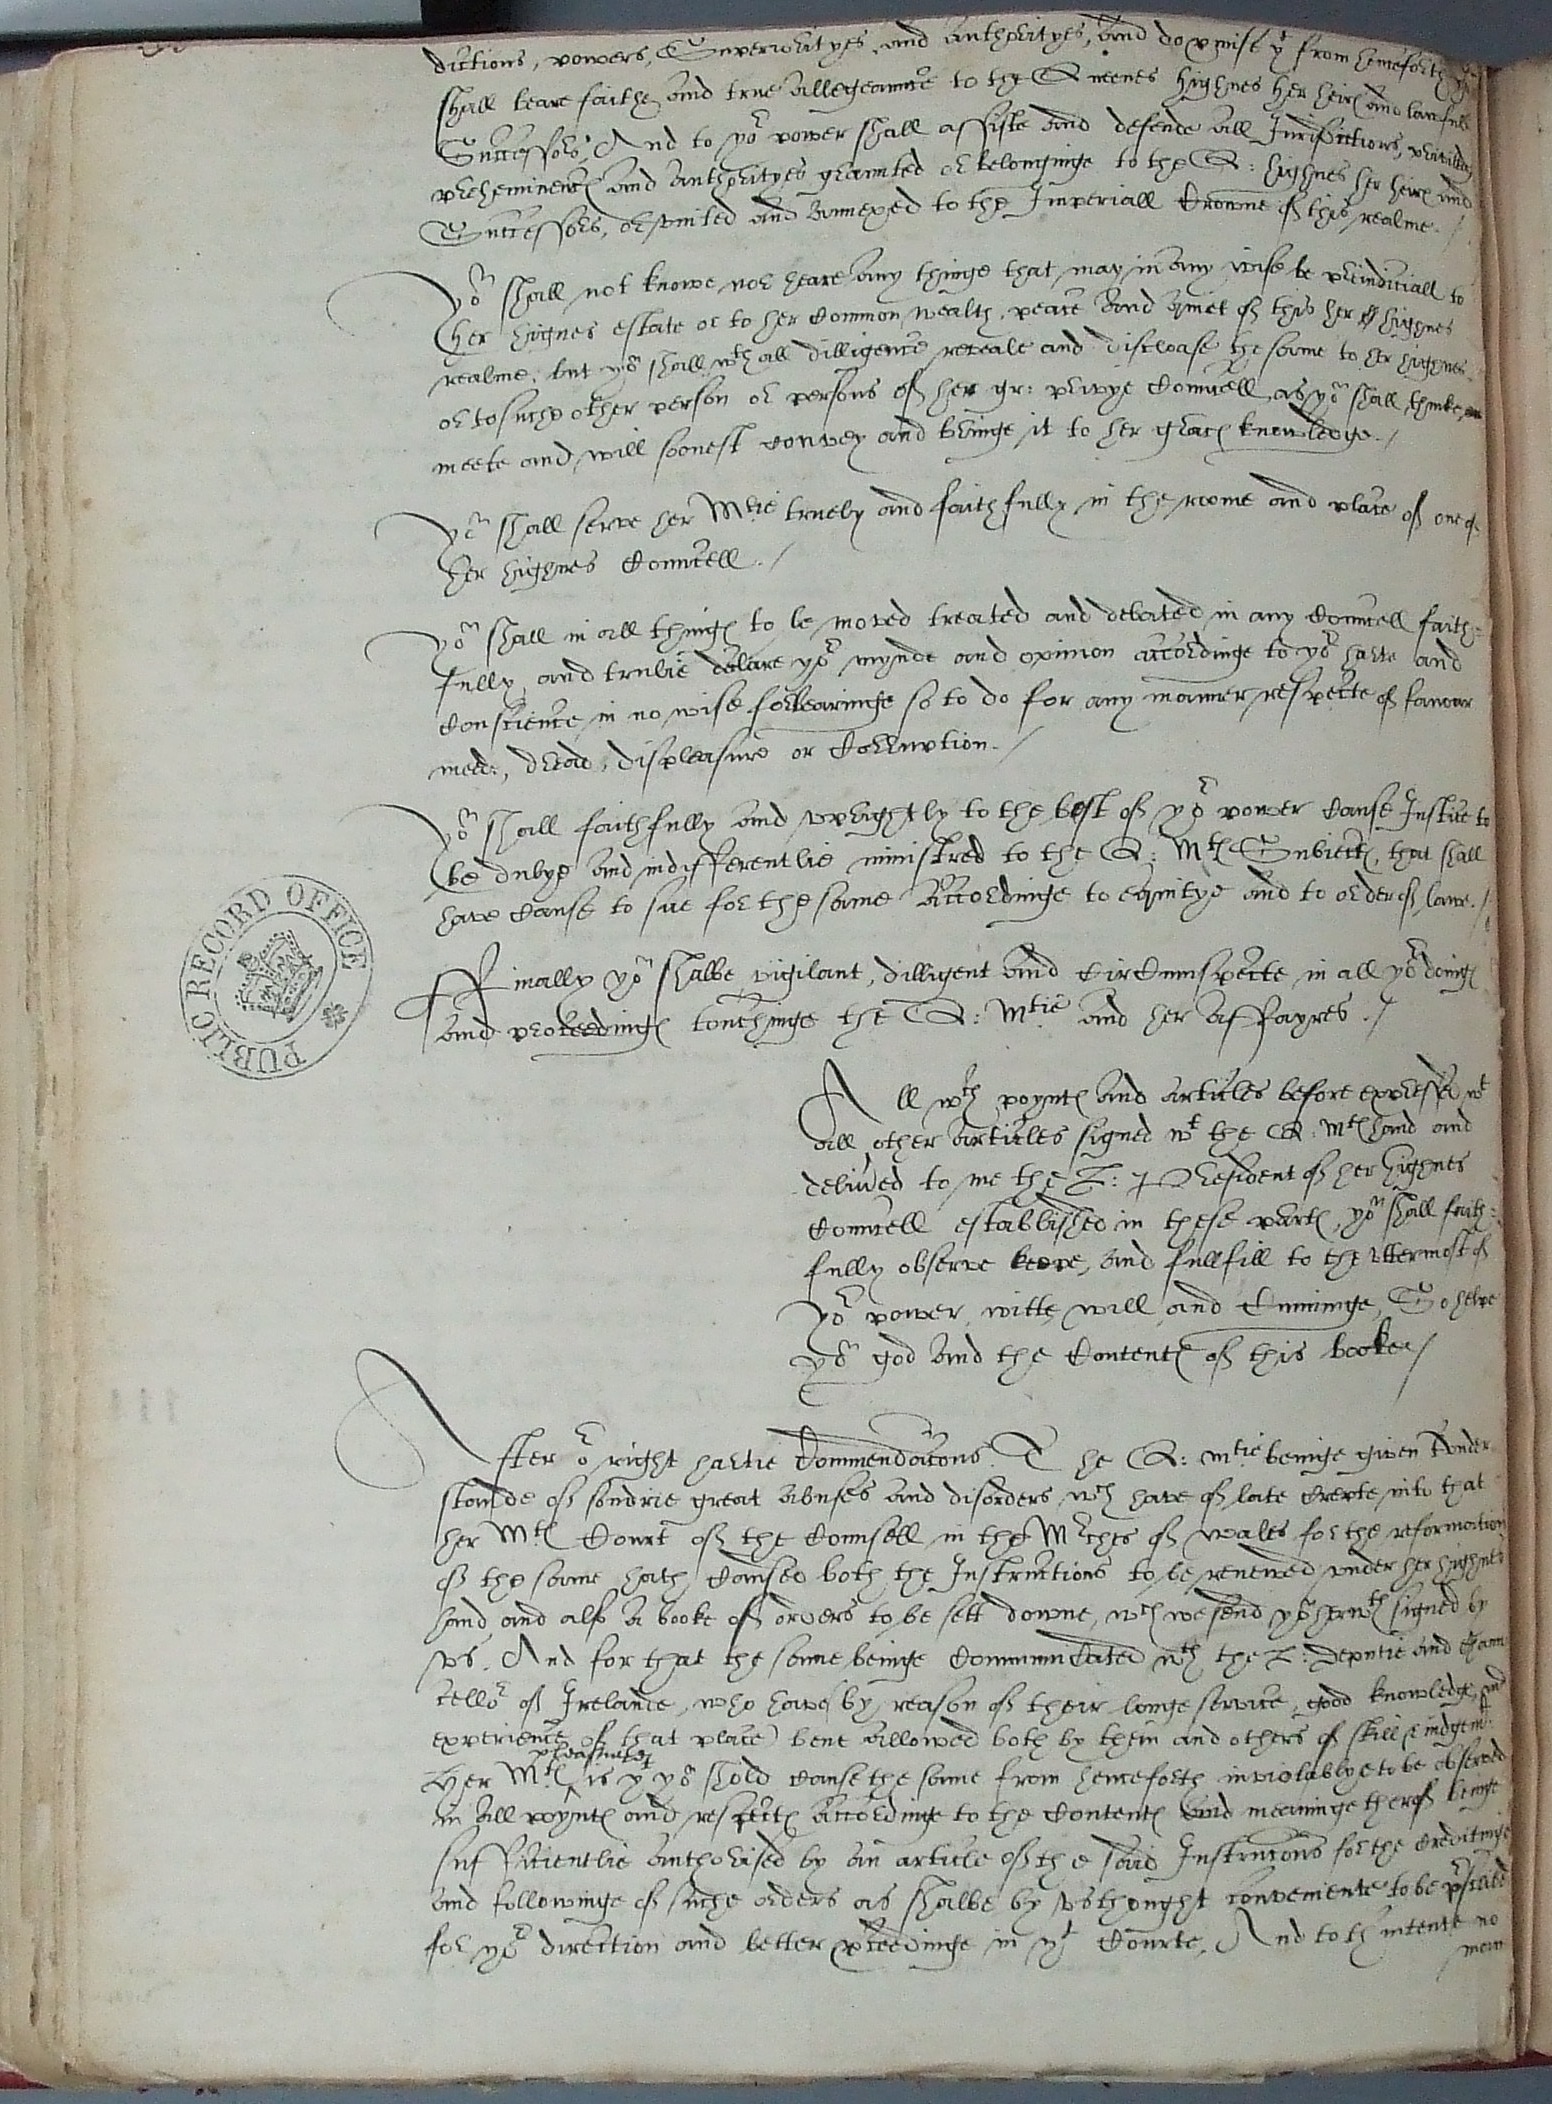 dictions, powers, Superiorityes, and authorityes, And do pmise yt from henceforth yo
shall beare faithe and true Allegeaunce to the Queenes highnes her heires and lawfull
Successors, And to yor power shall assiste and defende all Jurisdictions, priviledg
preheminences and authorityes graunted or belonginge to the Q: highnes her heires and
Successors, or united and annexed to the Imperiall Crowne of this realme. /
You shall not knowe nor heare any thinge that may in any wise be preiudiciall to
her highnes estate or to her Common wealth, peace and quiet of this her highnes
realme, but you shall wth all dilligence reveale and disclose the same to her highnes
or to suche other person or persons of her gr: privye Councell, as you shall thinke
meete and will soonest convey and bringe it to her graces knowledge. /
You shall serve her Mtie truely and faithfully in the roome and place of one of
her highnes Councell. /
You shall in all things to be moved treated and debated in any Councell faith=
fully and trulie declare yor mynde and opinion accordinge to yor harte and
conscience in no wise forbearinge so to do for any manner respecte of favour
meed, dread, displeasure or Corruption. /
You shall faithfully and uprightly to the best of yor power Cause Justice to
be dulye and indifferentlie ministred to the Q: Mtes Subiectes, that shall
have Cause to sue for the same Accordinge to equitye and to order of lawe. /
Finally you shalbe vigilant, dilligent and Circumspecte in all yor doings
and proceedings touchinge the Q: Mtie and her affayres. /
All wch poyntes and articles before expressed wt
all other articles signed wt the Q: Mtes hand and
delivred to me the L: President of her highnes
Councell established in these partes, you shall faith=
fully observe keepe, and fullfill to the uttermost of
yor power, witte, will and Cuninge, So helpe
you god and the Contentes of this booke /
After or right hartie Commendacons. The Q: Mtie beinge given tunder
stande of sondrie great abuses and disorders wch have of late crepte into that
her Mtes Court of the Counsell in the Mrches of wales for the reformation
of the same hath Caused both the Instructions to be renewed under her highnes
hand and also a booke of orders to be sett downe, wch we send you herewth signed by
us. And for that the same beinge Communicated wth the L: Deputie and Chaun
cellor of Irelande, who have (by reason of their longe service, good knowledge, and
experience of that place) bene allowed both by them and others of skill & iudgemt
Her Mtes pleasure is yt you shold cause the same from henceforth inviolablye to be observed
in All poyntes and respectes Accordinge to the Contentes and meaninge therof beinge
sufficientlie authorised by an article of the said Instrucons for the Creditinge
and followinge of suche orders as shalbe by us thought conveniente to be prscribed
for yor direction and better pceedinge in yt Courte. And to th intente no
man
PUBLIC RECORD OFFICE